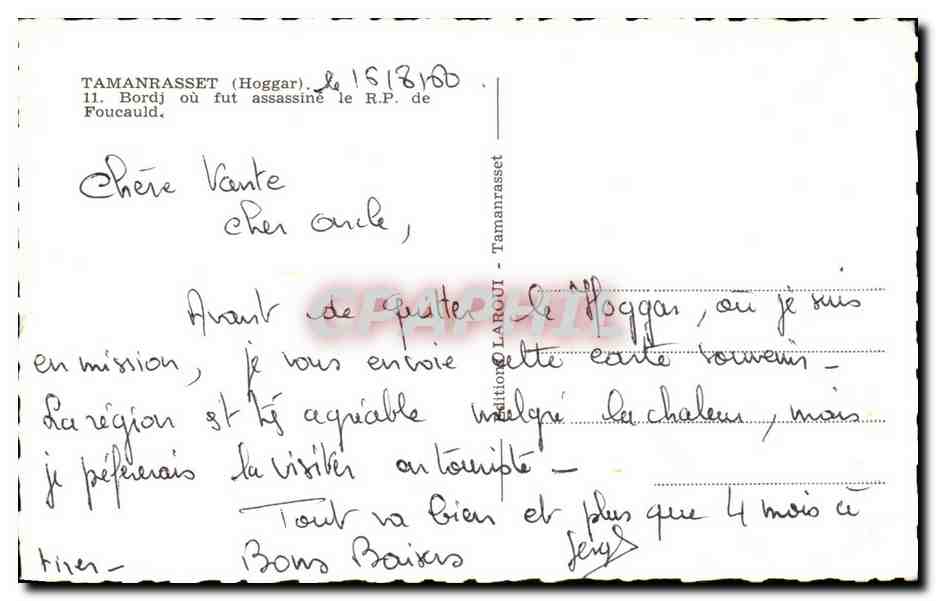 TAMANRASSET (Hoggar). le 15/8/60.
11. Bordj où fut assassiné le R.P. de
Foucauld.
Chère Tante
Cher oncle,
Avant de quitter le Hoggar, où je suis
en mission, je vous envoie cette carte souvenir -
La région est très agréable malgré la chaleur, mais
je préfèrerais la visiter en touriste -
Tout va bien et plus que 4 mois à
tirer - Bons Baisers Serge
Editions LAROUI - Tamanrasset
CPAPHIL